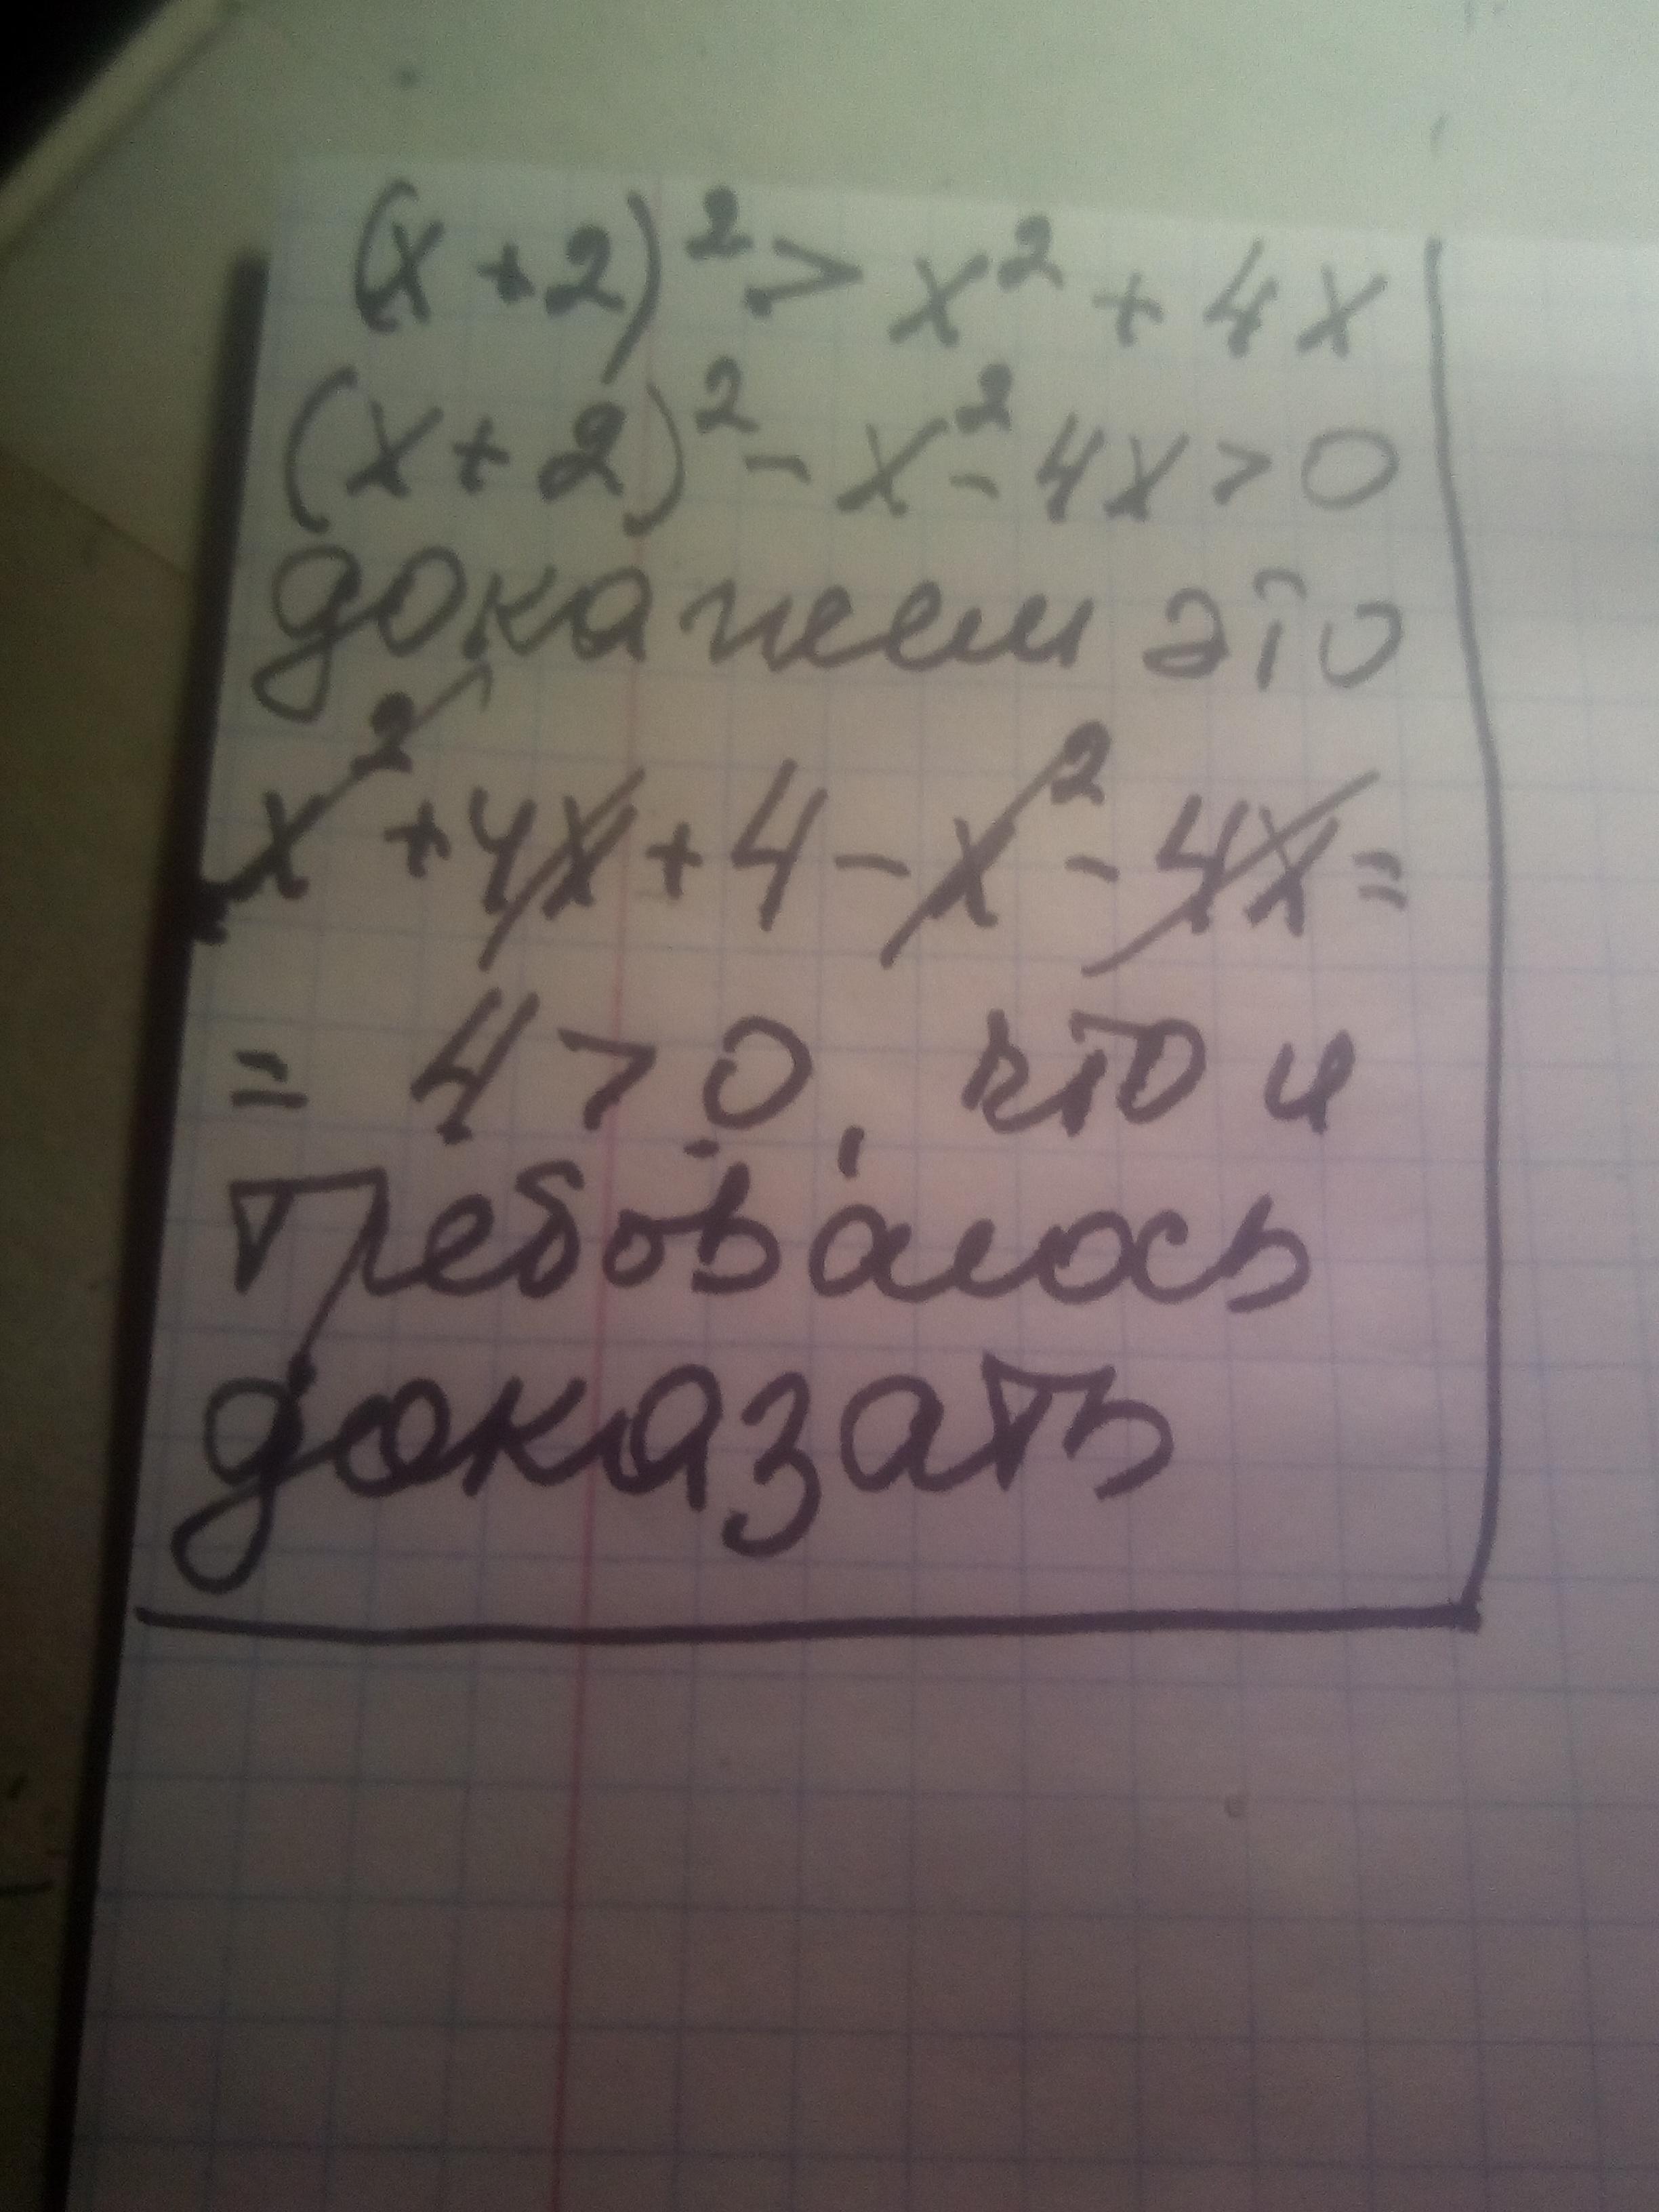 (x+2)² > x² + 4x
(x+2)² - x² - 4x > 0
докажем это
x² + 4x + 4 - x² - 4x =
= 4 > 0, что и
требовалось
доказать